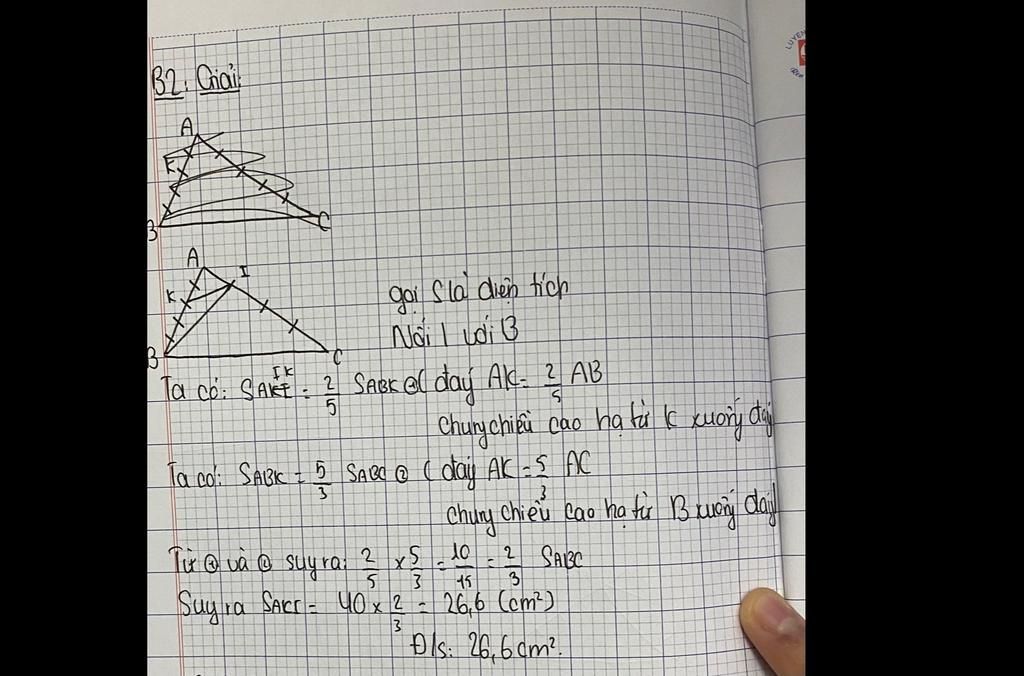 B2: Giải:
A
K
B
C
A
I
K
B
C
gọi S là diện tích
Nối I với B
Ta có: SAIK = 2/5 SABK ① ( đáy AK = 2/5 AB
chung chiều cao hạ từ K xuống đáy
Ta có: SABK = 5/3 SABC ② ( đáy AK = 5/3 AC
chung chiều cao hạ từ B xuống đáy
Từ ① và ② suy ra: 2/5 x 5/3 = 10/15 = 2/3 SABC
Suy ra SAKI = 40 x 2/3 = 26,6 (cm²)
Đ/s: 26,6 cm².